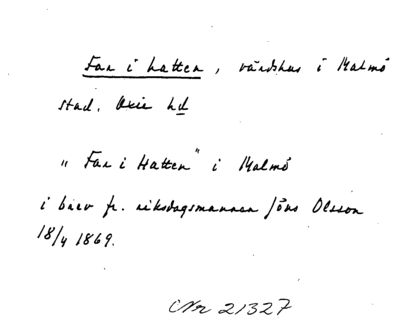 Far i hatten, värdshus i Malmö
stad. Oxie hd
"Far i Hatten" i Malmö
i brev fr. riksdagsmannen Jöns Olsson
18/4 1869.
Nr 21327